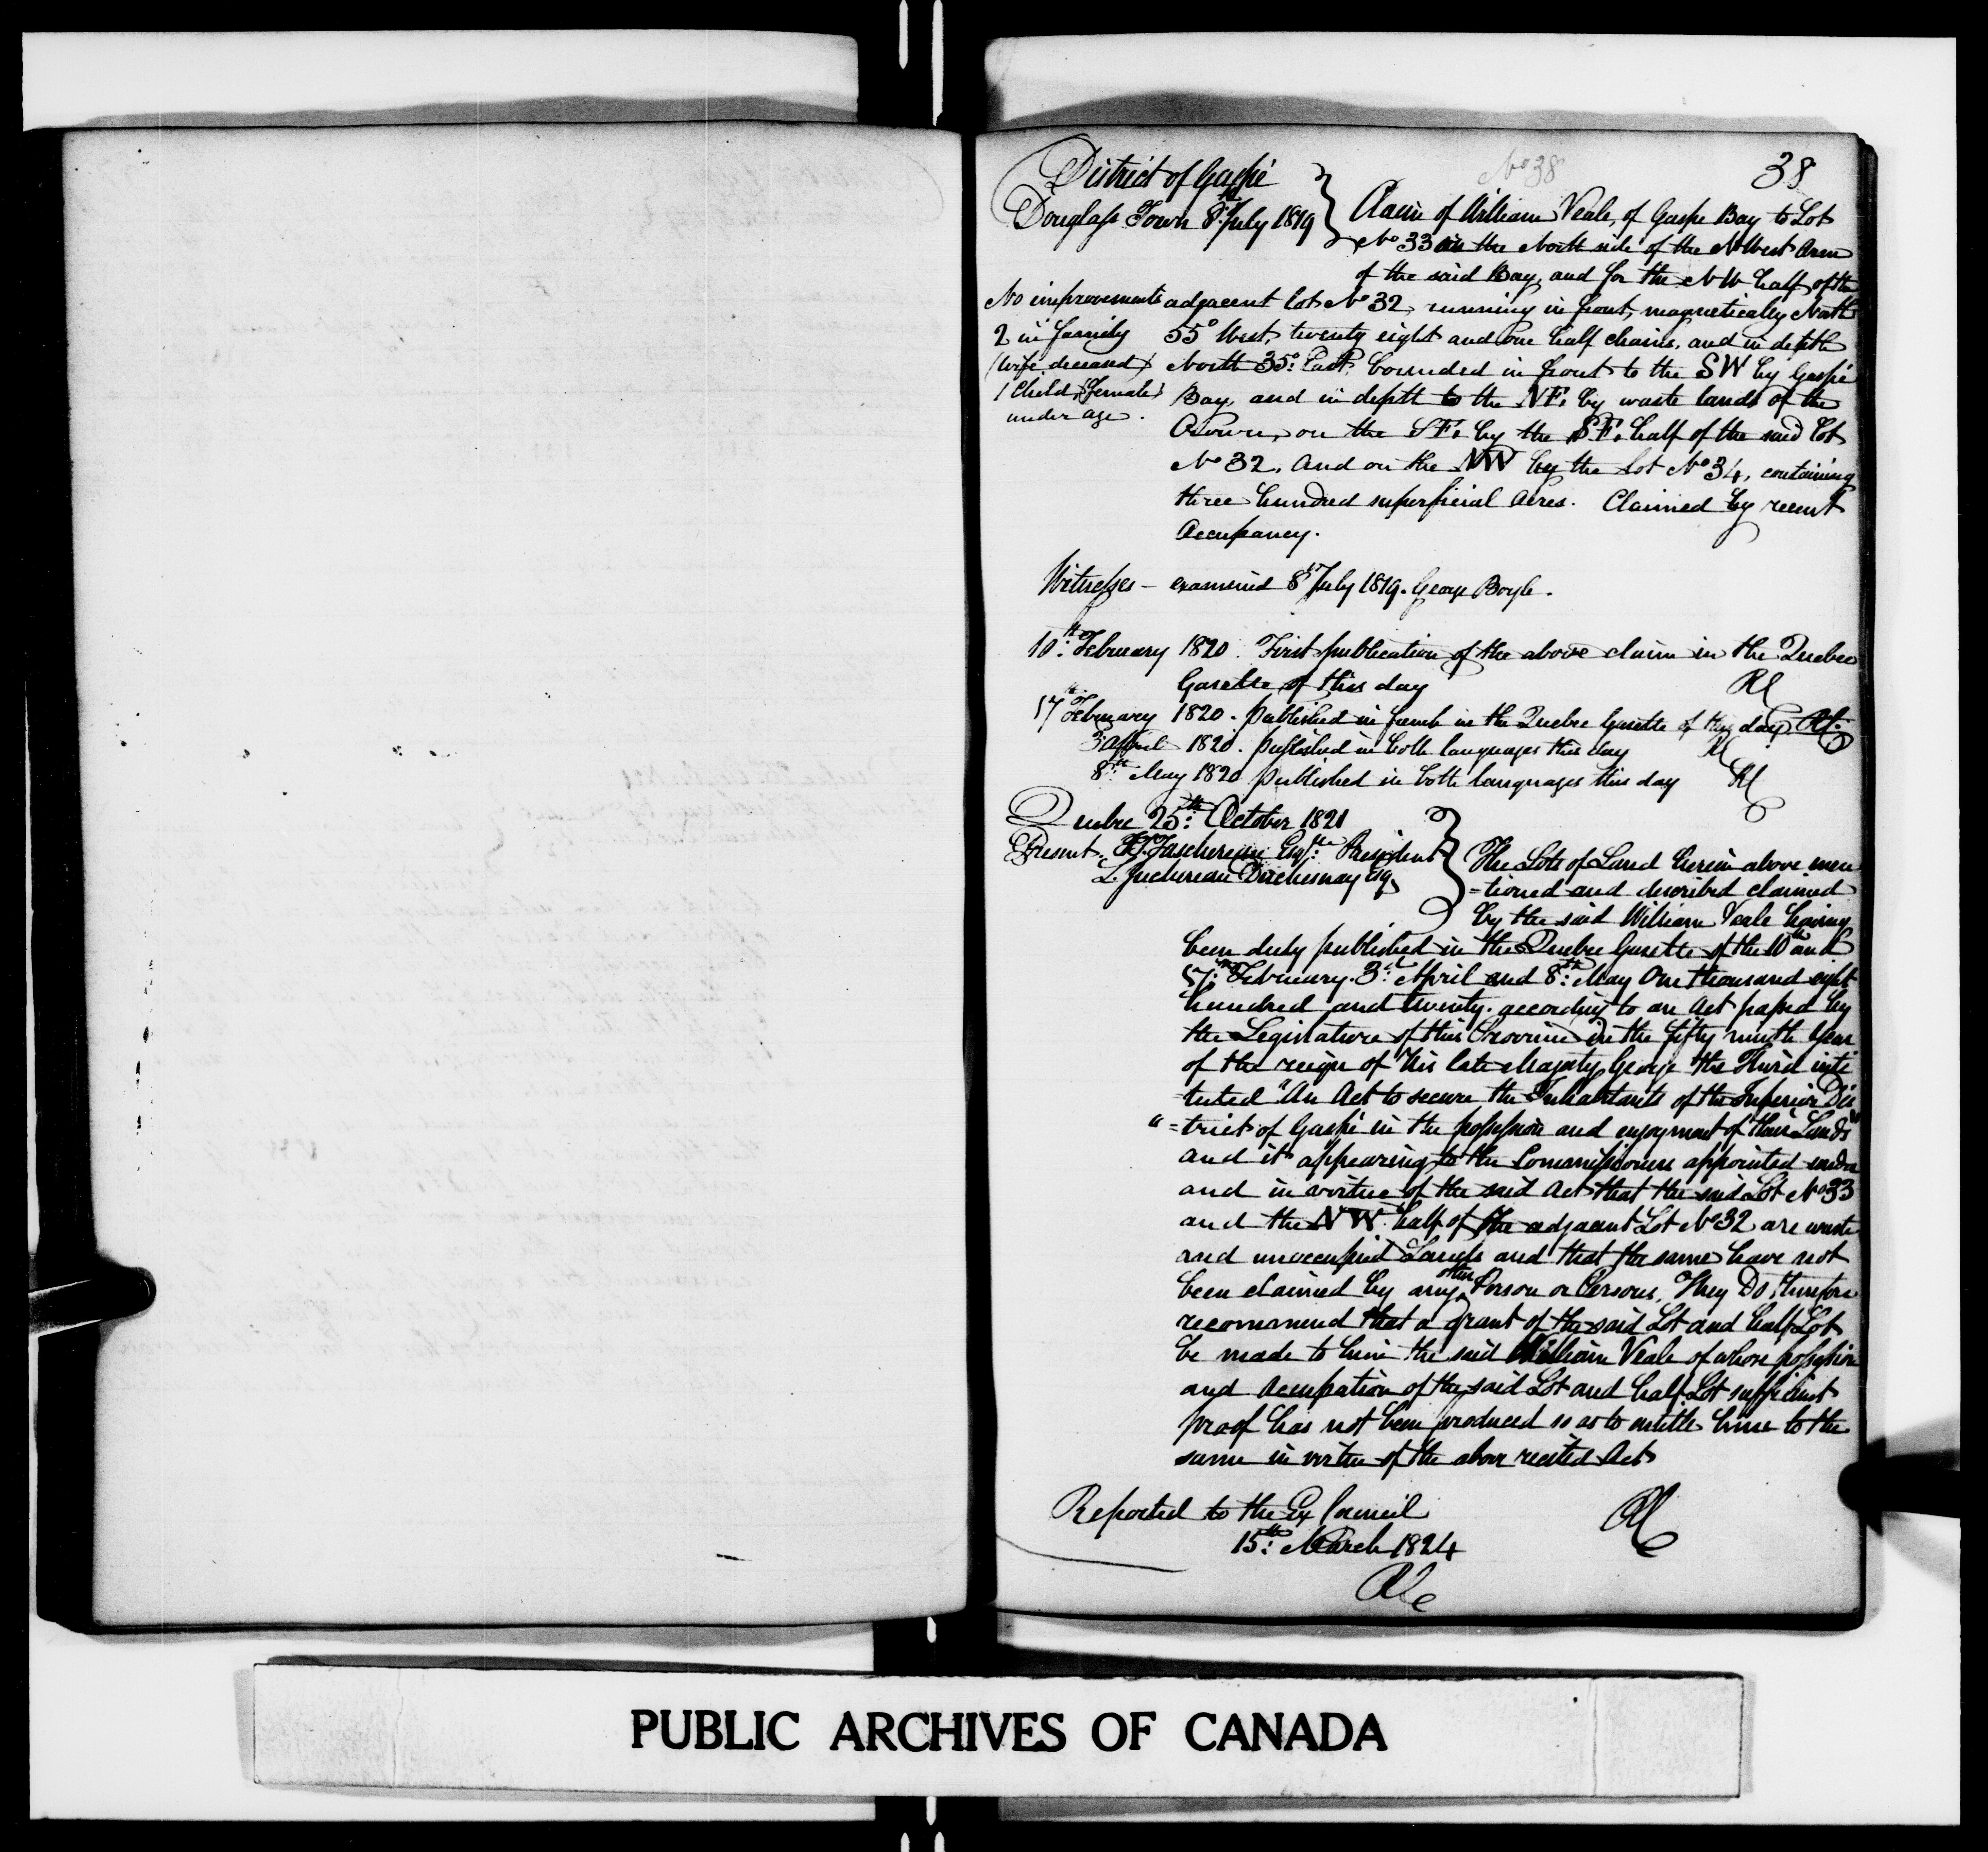 No 38
38
District of Gaspé
Douglass Town 8th July 1819
Claim of William Veale, of Gaspe Bay to Lot
No 33 in the North side of the N West Arm
of the said Bay, and for the NW half of the
adjacent lot No 32, running in front, magnetically North
55° West, twenty eight and one half chains, and in depth
North 35° East, bounded in front to the SW by Gaspé
Bay, and in depth to the NE, by waste lands of the
Crown, on the SE, by the SE, half of the said Lot
No 32, And on the NW by the Lot No 34, containing
three hundred superficial Acres. Claimed by recent
Occupancy.
No improvements
2 in family
(wife deceased)
1 Child (Female)
under age.
Witnesses - examined 8th July 1819. George Boyle.
10th February 1820. First publication of the above claim in the Quebec
Gazette of this day
17th February 1820. Published in french in the Quebec Gazette of this day
3d April 1820. published in both languages this day
8th May 1820 published in both languages this day
Quebec 25th October 1821
Present. Taschereau Esqre President
L. Juchereau Duchesnay Esq
The Lots of Land herein above men
=tioned and described claimed
by the said William Veale having
been duly published in the Quebec Gazette of the 10th and
17th February. 3d April and 8th May One thousand eight
hundred and twenty. according to an Act passed by
the Legislature of this Province in the fifty ninth Year
of the reign of His late Majesty George the Third inti
tuted "An Act to secure the Inhabitants of the Inferior Dis
" =trict of Gaspé in the possession and enjoyment of their Lands"
and it appearing to the Commissioners appointed under
and in virtue of the said Act that the said Lot No 33
and the NW half of the adjacent Lot No 32 are waste
and unoccupied Lands and that the same have not
been claimed by any other Person or Persons, They Do therefore
recommend that a grant of the said Lot and half Lot
be made to him the said William Veale of whose possession
and Occupation of the said Lot and half Lot sufficient
proof has not been produced so as to entitle him to the
same in virtue of the above recited Act
Reported to the Ex Council
15th March 1824
PUBLIC ARCHIVES OF CANADA